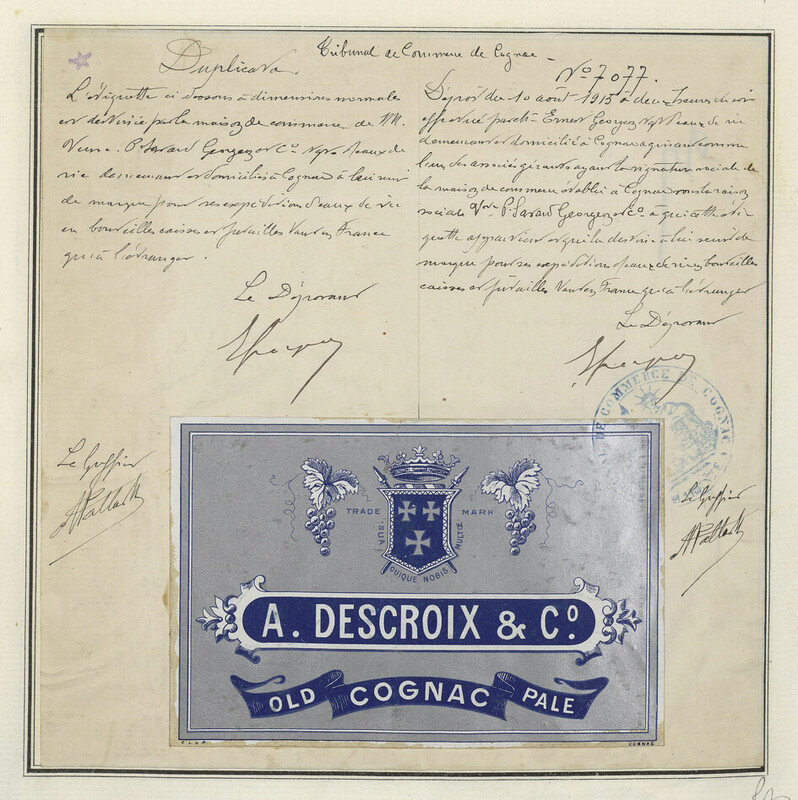 Tribunal de Commerce de Cognac
Duplicata
L'étiquette ci dessous à dimensions normales
est destinée par la maison de commerce de M.
Veuve P. Savard Georges et Cº Negts d'eaux de
vie demeurant et domiciliés à Cognac à leur servir
de marque pour ses expéditions d'eaux de vie
en bouteilles caisses et futailles tant en France
qu'à l'étranger.
Le Déposant
Nº 7077.
Dépôt du 10 août 1915 à deux heures du soir
effectué par M. Ernest Georges Negt d'eaux de vie
demeurant et domicilié à Cognac agissant comme
l'un des associés gérants ayant la signature sociale de
la maison de commerce établie à Cognac sous la raison
sociale Vve P. Savard Georges et Cº à qui cette éti
quette appartient et qui la destine à lui servir de
marque pour ses expéditions d'eaux de vie en bouteilles
caisses et futailles tant en France qu'à l'étranger
Le Déposant
DE COMMERCE DE COGNAC
Le Greffier
Le Greffier
TRADE MARK
SUA CUIQUE NOBIS
A. DESCROIX & Cº.
OLD COGNAC PALE
COGNAC